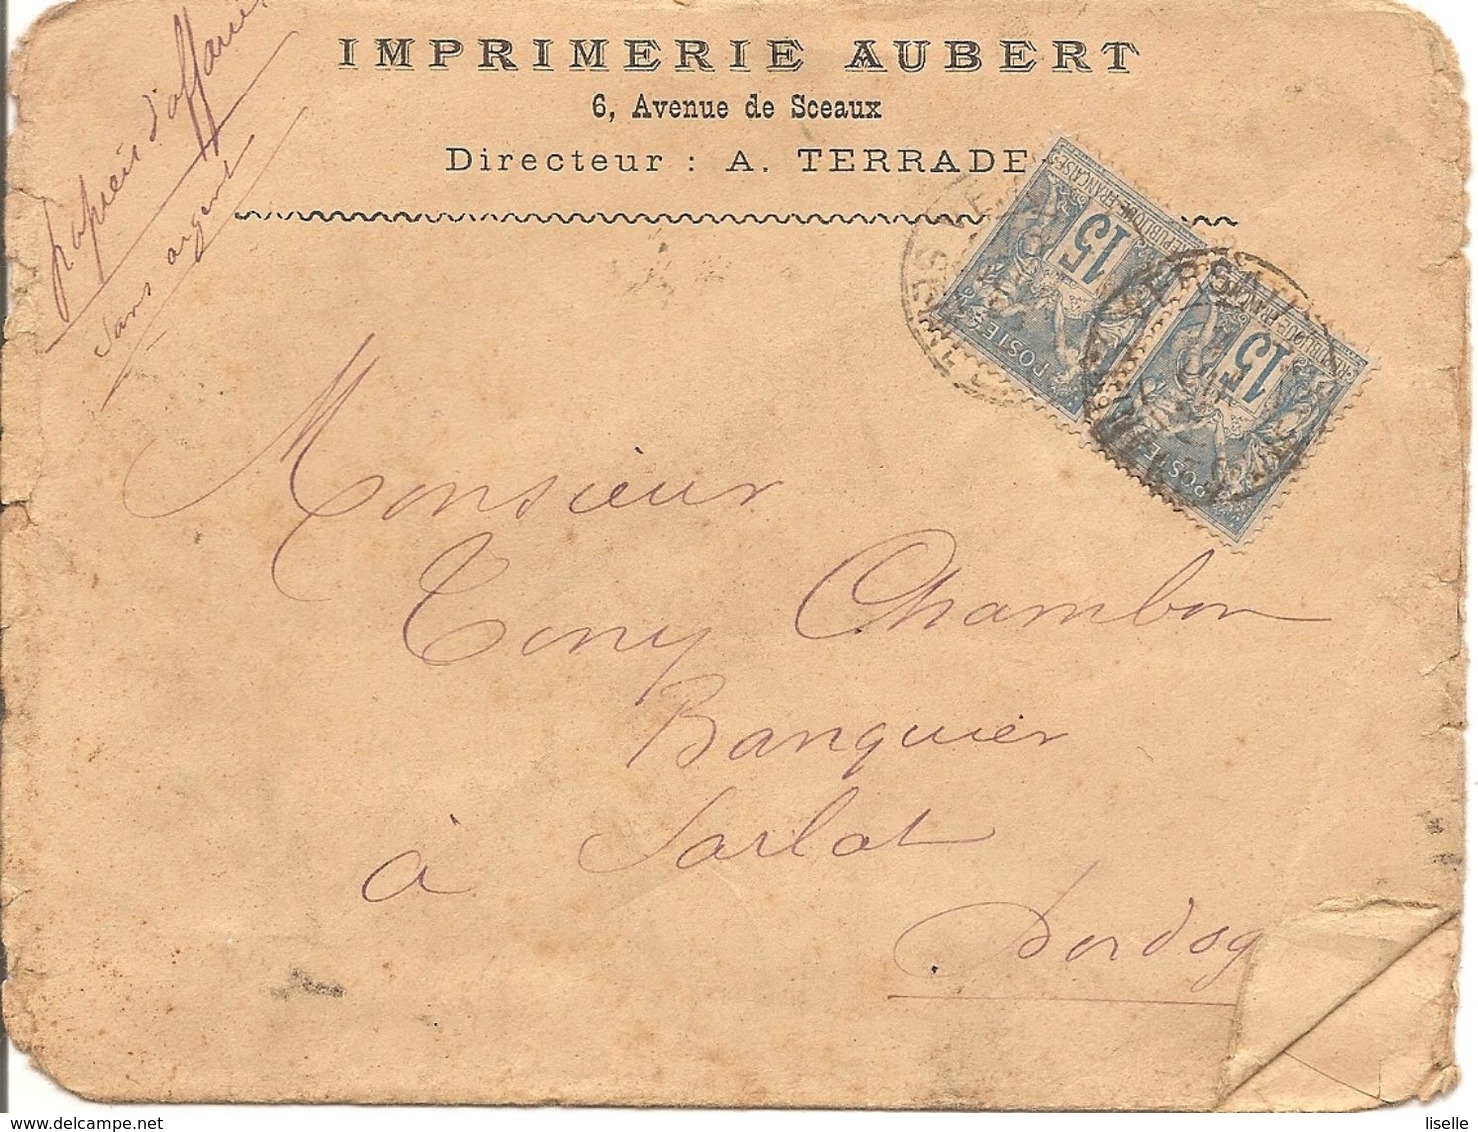 papiers d'affaires
sans argent
IMPRIMERIE AUBERT
6, Avenue de Sceaux
Directeur : A. TERRADE
REPUBLIQUE FRANÇAISE
15
POSTES
REPUBLIQUE FRANÇAISE
15
POSTES
Monsieur
Tony Chambon
Banquier
à Sarlat
Dordog
liselle